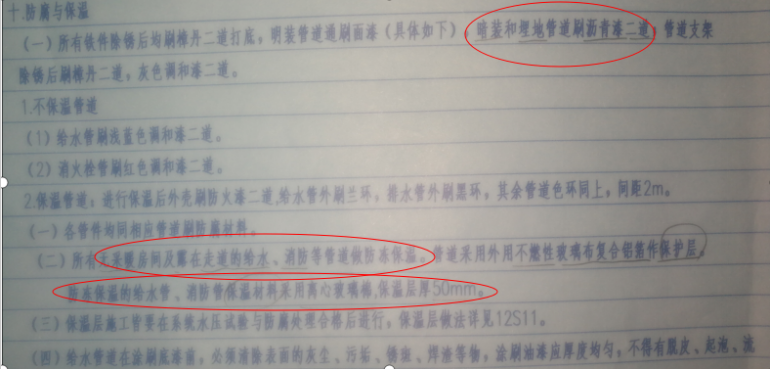 十.防腐与保温
(一)所有铁件除锈后均刷樟丹二道打底，明装管道遍刷面漆(具体如下)，暗装和埋地管道刷沥青漆二道；管道支架
除锈后刷樟丹二道，灰色调和漆二道。
1.不保温管道
(1)给水管刷浅蓝色调和漆二道。
(2)消火栓管刷红色调和漆二道。
2.保温管道：进行保温后外壳刷防火漆二道,给水管外刷兰环，排水管外刷黑环，其余管道色环同上，间距2m。
(一)各管件均同相应管道刷防腐材料。
(二)所有无采暖房间及露在走道的给水、消防等管道做防冻保温。管道采用外用不燃性玻璃布复合铝箔作保护层。
防冻保温的给水管、消防管保温材料采用离心玻璃棉,保温层厚50mm。
(三)保温层施工皆要在系统水压试验与防腐处理合格后进行，保温层做法详见12S11。
(四)给水管道在涂刷底漆前，必须清除表面的灰尘、污垢、锈渣、焊渣等物，涂刷油漆应厚度均匀，不得有脱皮、起泡、流